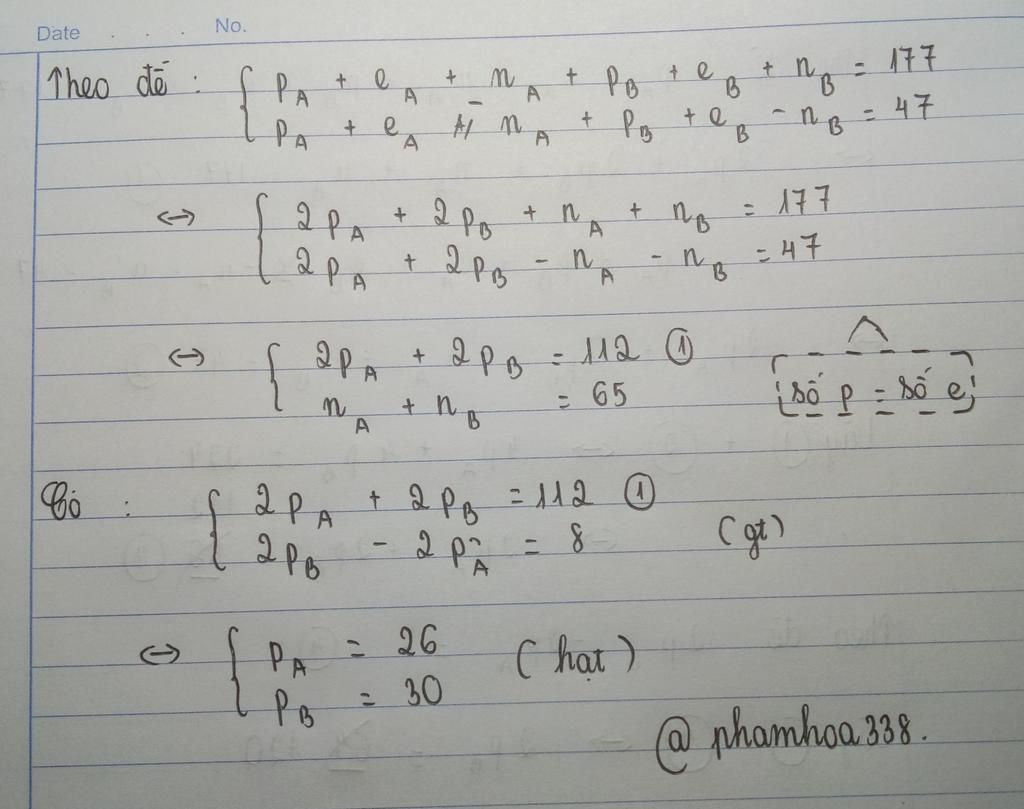 Date . . . No.
Theo đề : { p_A + e_A + n_A + p_B + e_B + n_B = 177
p_A + e_A - n_A + p_B + e_B - n_B = 47
<-> { 2p_A + 2p_B + n_A + n_B = 177
2p_A + 2p_B - n_A - n_B = 47
<-> { 2p_A + 2p_B = 112 ①
n_A + n_B = 65
số p = số e
Có : { 2p_A + 2p_B = 112 ①
2p_B - 2p_A = 8 (gt)
<-> { p_A = 26 (hạt)
p_B = 30
@phamhoa338.